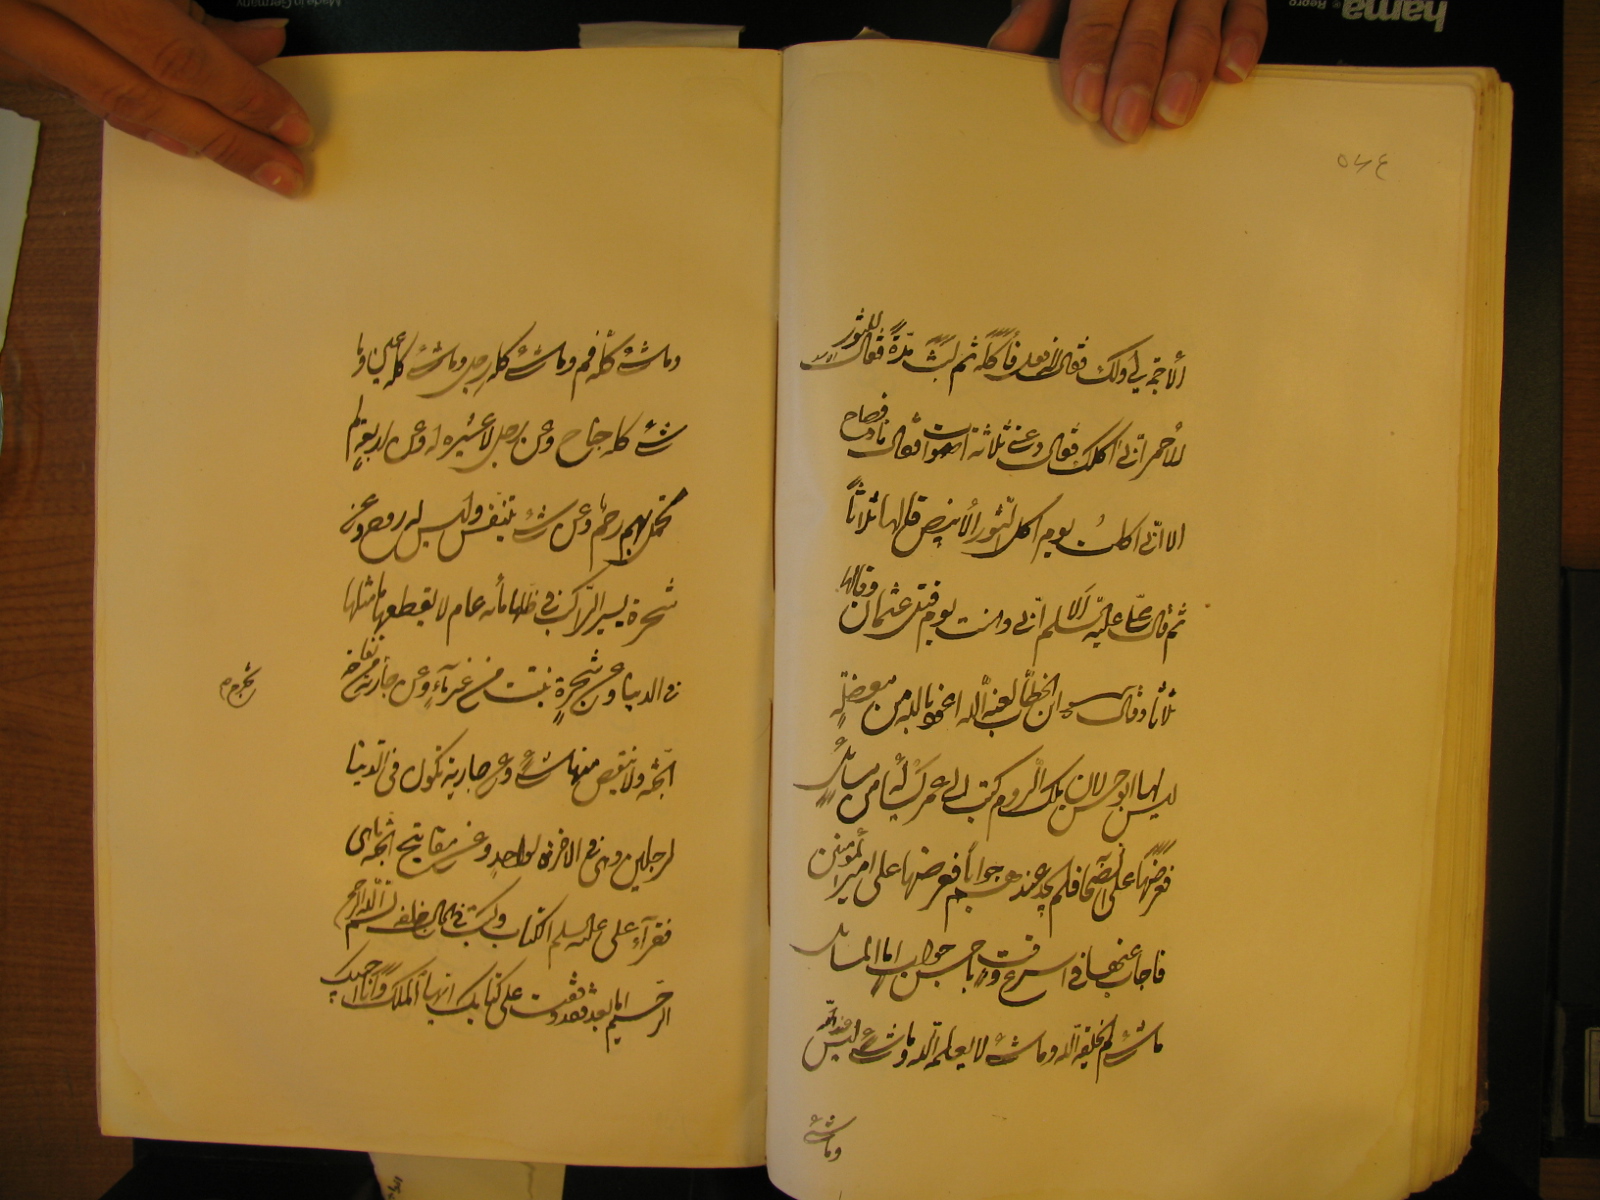 ٥٧٤
الأجمة لي ولك فقال افعل فأكله ثم لبث مدّة فقال للثور
للأحمر انّي اكلك فقال دعني ثلاثة اصوات فقال ناد فصاح
الا انّي اكلت يوم اكل الثور الأبيض قالها ثلاثاً
ثم قال علي عليه السلام الا انّي وهنت يوم قتل عثمان وقالها
ثلاثا وقال ابن الخطاب لعنه اللّه اعوذ بالله من معضلة
ليس لها ابو حسن لان ملك الروم كتب الى عمر يسأله عن مسائل
فعرضها على الصحابة فلم يجد عندهم جواباً فعرضها على امير المؤمنين
فاجاب عنها في اسرع وقت باحسن جواب اما المسائل
ما شيء لم يخلقه اللّه وما شيء لا يعلمه اللّه وما شيء ليس عند اللّه
وما شيء
وما شيء كله فم وما شيء كله رجل وما شيء كله عين وما
شيء كله جناح وعن رجل لا عشيرة له وعن اربعة لم
تحمل بهم رحم وعن شيء تنفس وليس له روح وعن
شجرة يسير الراكب في ظلها مأة عام لا يقطعها ما مثلها
في الدنيا وعن شجرة نبتت من غير ماء وعن
الجنة ولا ينقص منها شيء وعن جارية تكون في الدنيا
لرجلين وهي في الاخرة لواحد وعن مفاتيح الجنة ما هي
فقرأ علي عليه السلم الكتاب وكتب في الحال خلفه بسم اللّه الرحمن
الرحيم اما بعد فقد وقفت على كتابك ايها الملك وانا اجيبك
hama
Repro
Made in Germany